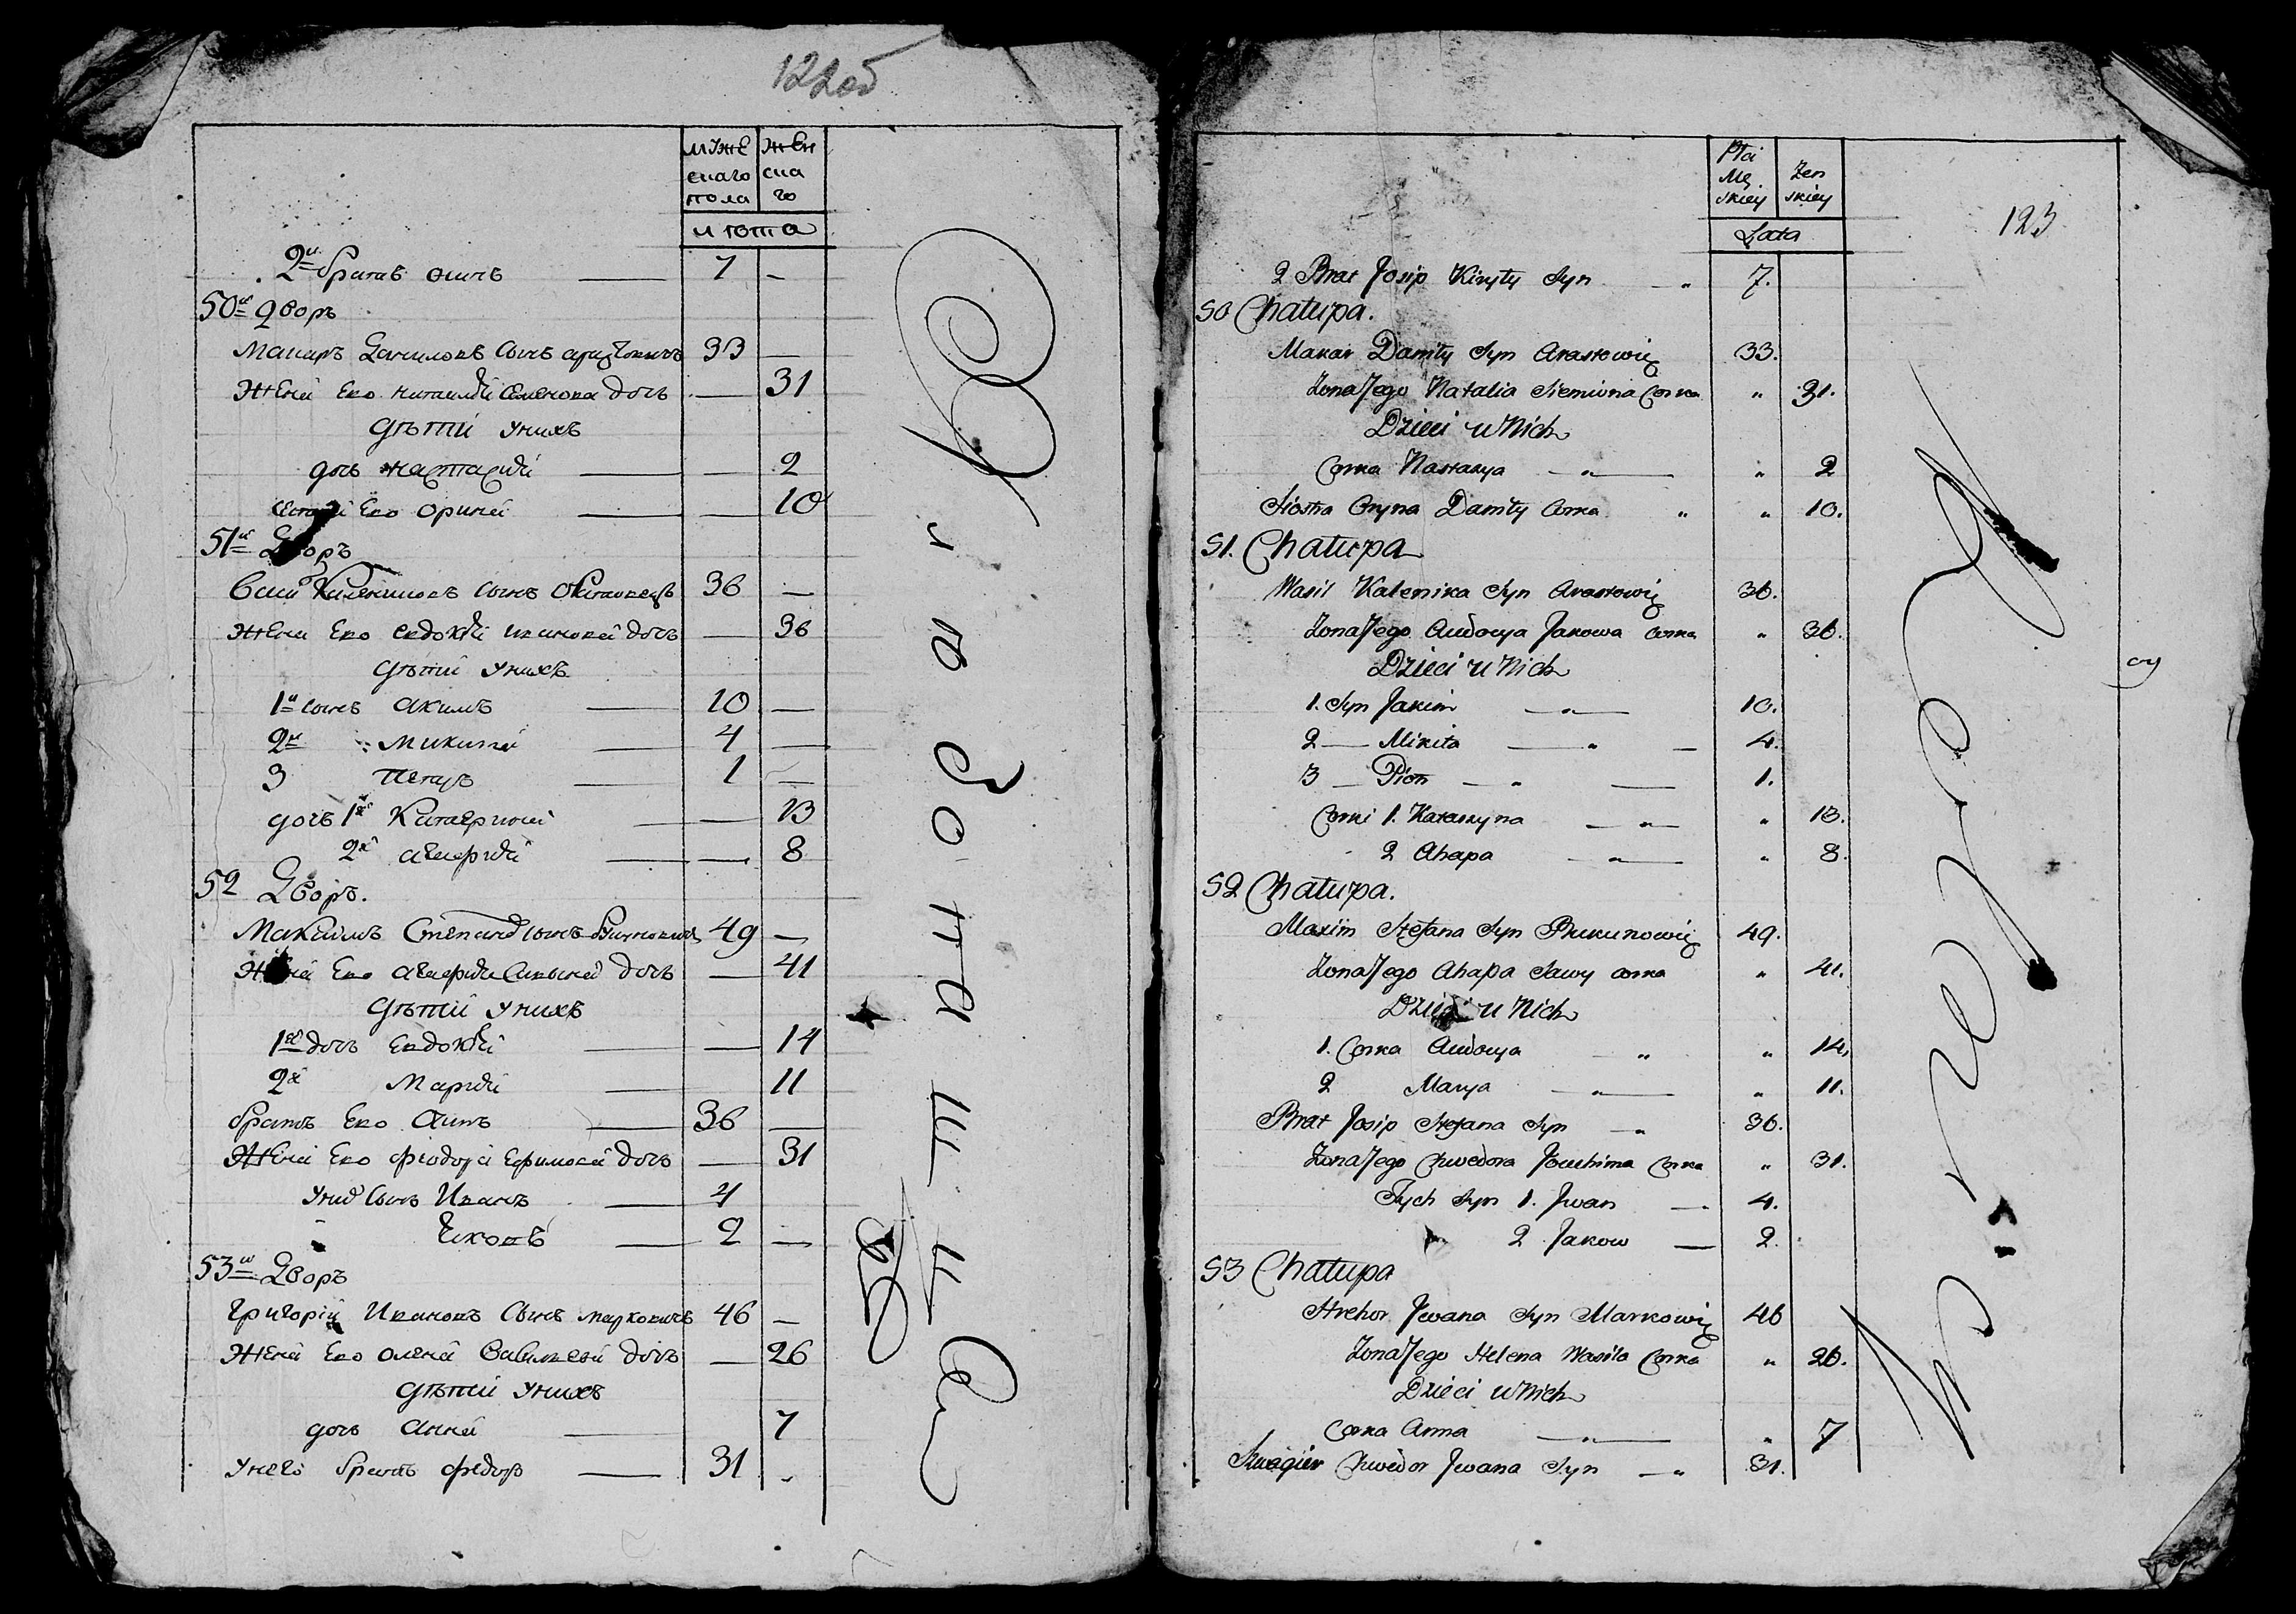 122об
муже женс
скаго ска
пола го
лѣта
2й братъ осипъ 7 —
50й дворъ
Макаръ Даниловъ сынъ 33 —
Жена Его наталия Семенова дочь — 31
дѣти у нихъ
дочь настасия — 2
сестра Его орина — 10
51й Дворъ
Калениковъ сынъ 36 —
Жена Его евдокия дочь — 36
дѣти у нихъ
1й сынъ акимъ 10 —
2й микита 4 —
3 петръ 1 —
дочь 1я Катерина — 13
2я агафия — 8
52 Дворъ.
Максимъ Степановъ сынъ 49 —
Жена Его агафия Савына дочь — 41
дѣти у нихъ
1я дочь Евдокия — 14
2я Мария — 11
братъ Его Осипъ 36 —
Жена Его фіодора Ефимова дочь — 31
у них сынъ Иванъ 4
Яковъ 2 —
53й Дворъ
Григорій Ивановъ сынъ марковичъ 46 —
Жена Его олена Васильева дочь — 26
дѣти у нихъ
дочь анна 7
у него братъ федоръ 31 -
123
Płci Zen
Mę skiey
skiey
Lata
2 Brat Josip Kiryły Syn — " 7.
50 Chałupa.
Makar Daniły Syn Arastowicz 33.
Zona Jego Natalia Siemiona Corka " 31.
Dzieci u Nich
Corka Nastasya — " — " 2
Siostra Oryna Daniły Corka " " 10.
51. Chałupa
Wasil Kalenika Syn Arastowicz 36.
Zona Jego Audocya Jakowa Corka " 36.
Dzieci u Nich
1. Syn Jakim — " — 10.
2 — Mikita — " — 4.
3 — Piotr — " — 1.
Corki 1. Katarzyna — " — " 13.
2 Ahapa — " — " 8.
52 Chałupa.
Maxim Stefana Syn Prukunowicz 49.
Zona Jego Ahapa Sawy Corka " 41.
Dzieci u Nich
1. Corka Audocya " " 14.
2 Marya — " — " 11.
Brat Josip Stefana Syn — " 36.
Zona Jego Chwedora Jouchima Corka " 31.
Tych Syn 1. Jwan — 4.
2 Jakow — 2.
53 Chałupa
Hrehor Jwana Syn Markowicz 46
Zona Jego Helena Wasila Corka " 26.
Dzieci u Nich
Corka Anna — " — " 7
Szwagier Chwedor Jwana Syn — " 31.